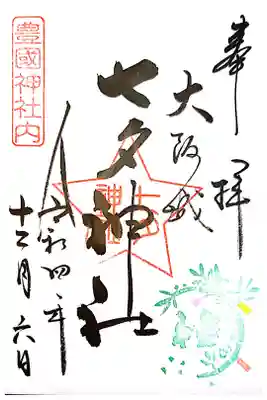 奉拝
大阪城
七夕神社
令和四年
十二月六日
豊國神社内